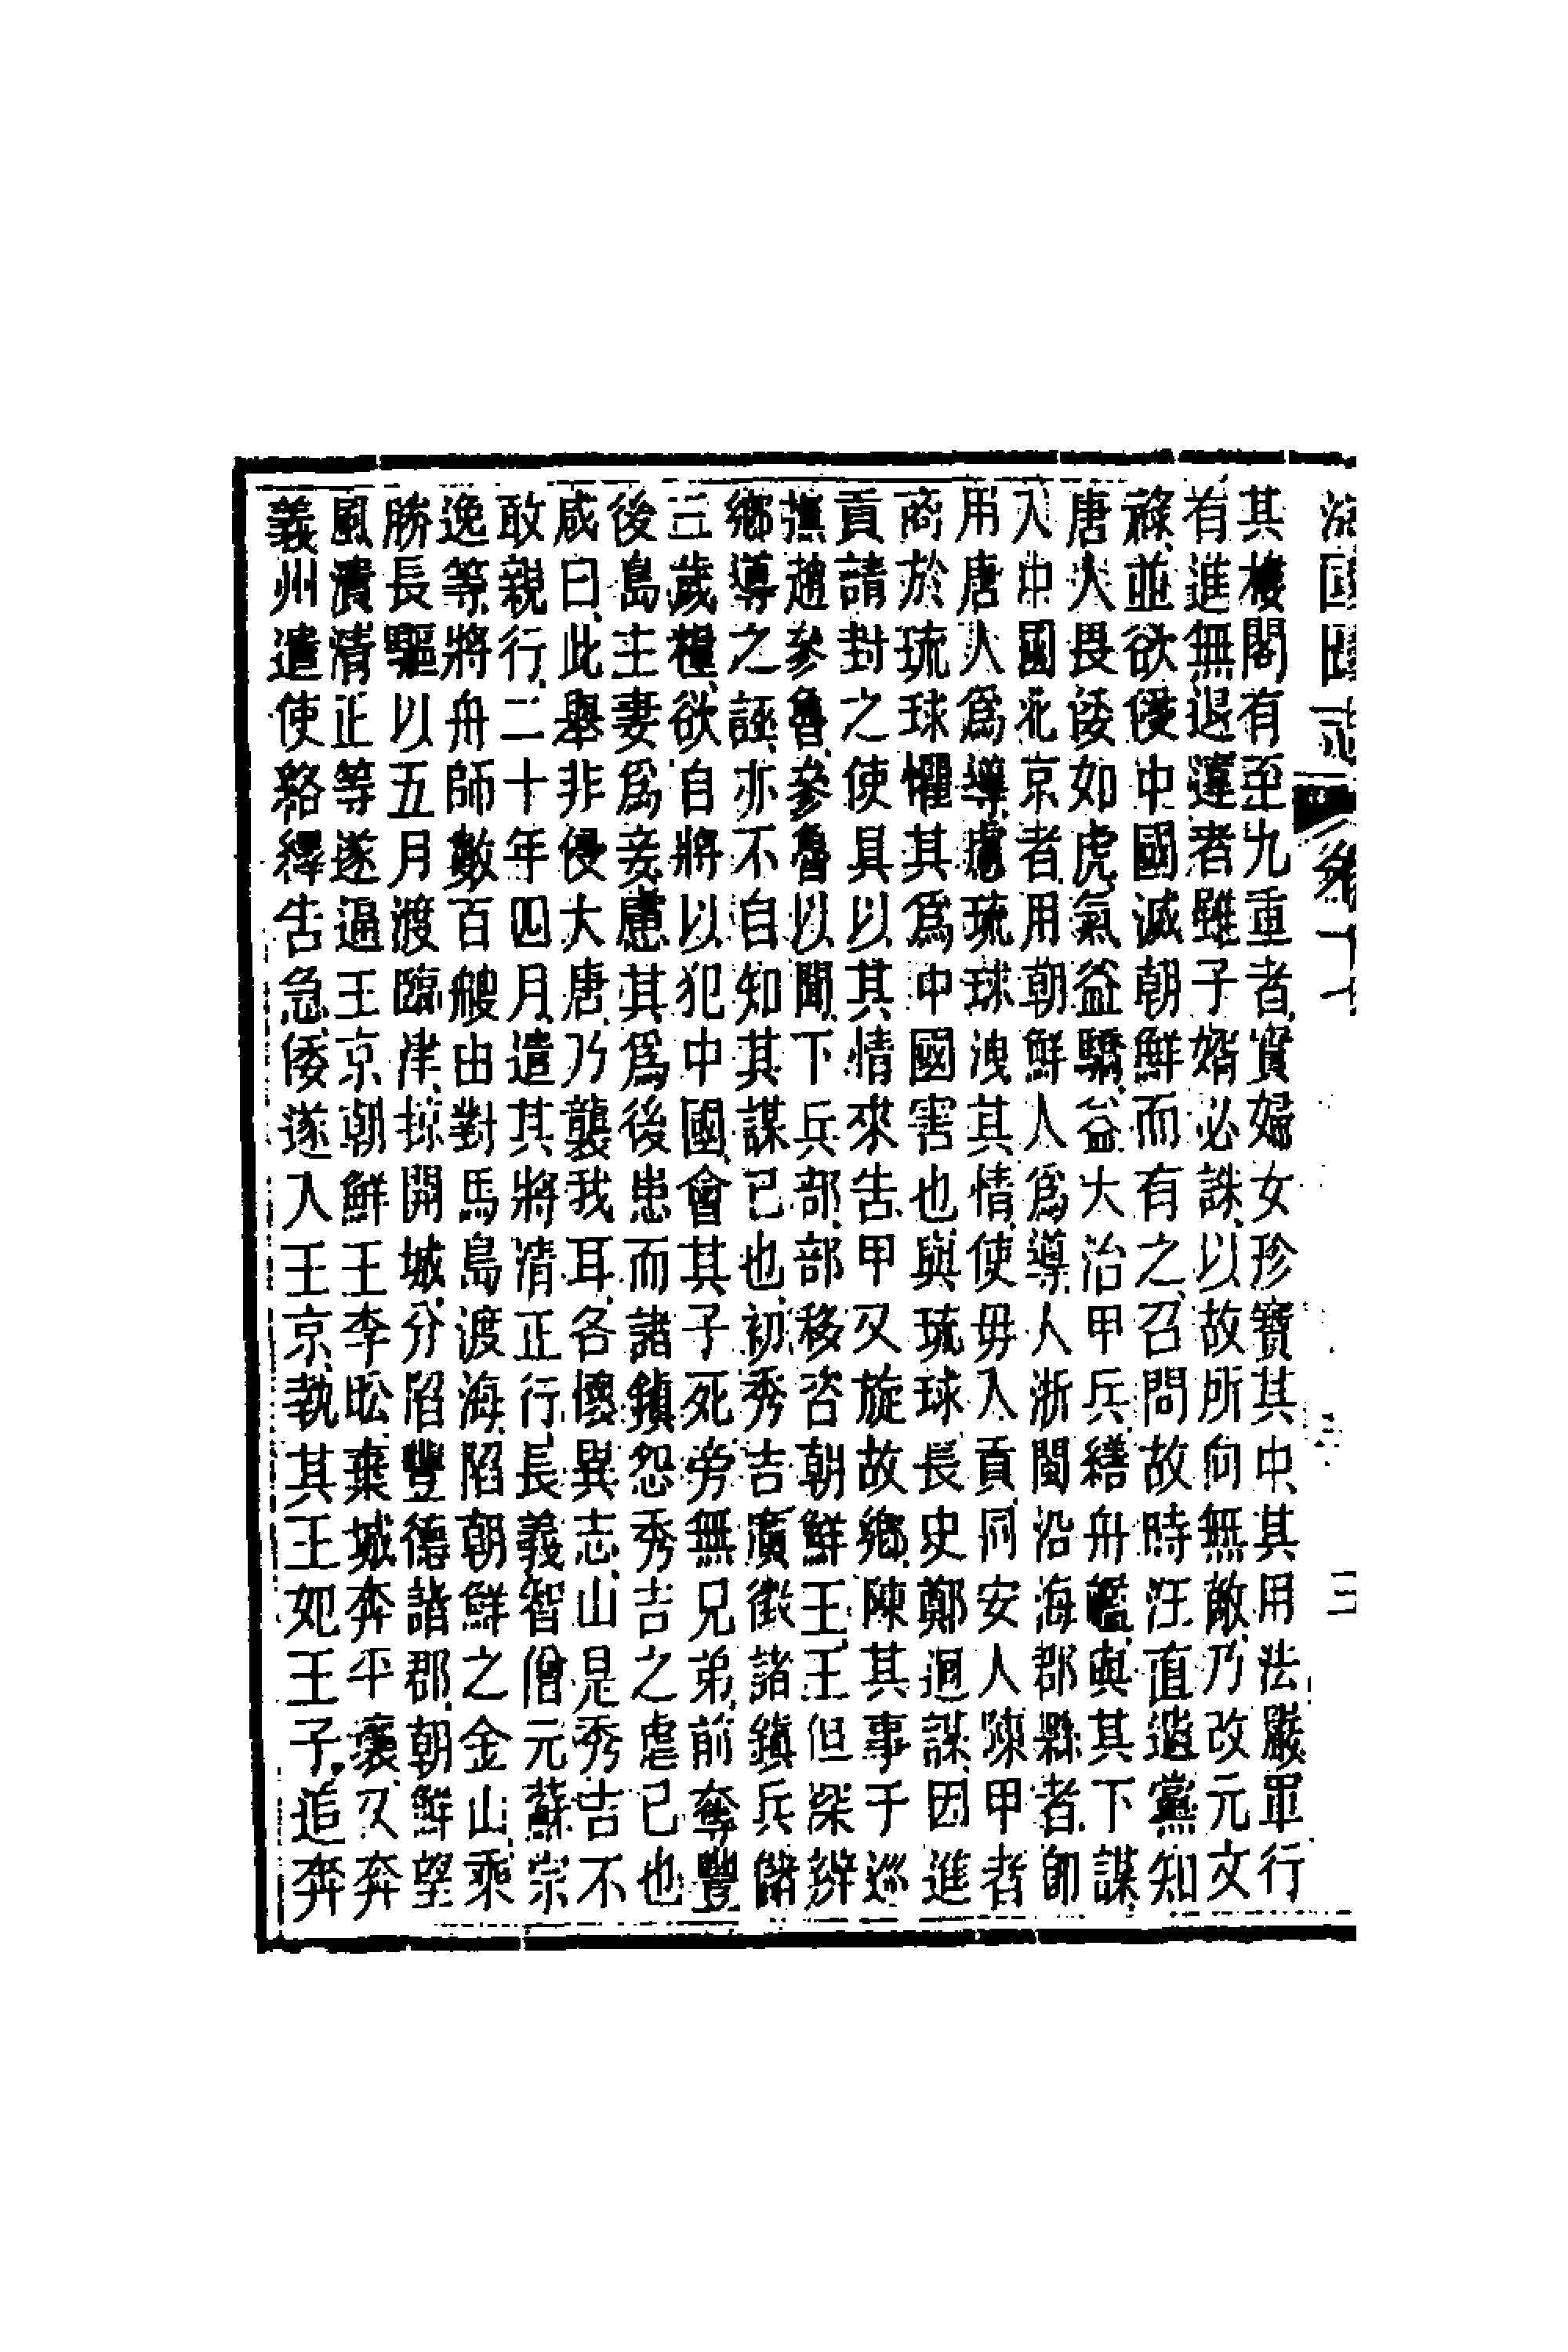 海國圖志 卷十七 三
其樓閣有至九重者實婦女珍寶其中其用法嚴軍行
有進無退違者雖子婿必誅以故所向無敵乃改元文
祿並欲侵中國滅朝鮮而有之召問故時汪直遺黨知
唐人畏倭如虎氣益驕益大治甲兵繕舟艦與其下謀
入中國北京者用朝鮮人為導入浙閩沿海郡縣者卽
用唐人為導慮琉球洩其情使毋入貢同安人陳甲者
商於琉球懼其為中國害也與琉球長史鄭迵謀因進
貢請封之使具以其情來告甲又旋故鄉陳其事于巡
撫趙參魯參魯以聞下兵部部移咨朝鮮王王但深辨
鄉導之誣亦不自知其謀己也初秀吉廣徵諸鎮兵儲
三歲糧欲自將以犯中國會其子死旁無兄弟前奪豐
後島主妻為妾慮其為後患而諸鎮怨秀吉之虐己也
咸曰此舉非侵大唐乃襲我耳各懷異志山是秀吉不
敢親行二十年四月遣其將清正行長義智僧元蘇宗
逸等將舟師數百艘由對馬島渡海陷朝鮮之金山乘
勝長驅以五月渡臨津掠開城分陷豐德諸郡朝鮮望
風潰清正等遂逼王京朝鮮王李昖棄城奔平壤又奔
義州遣使絡繹告急倭遂入王京執其王妃王子追奔